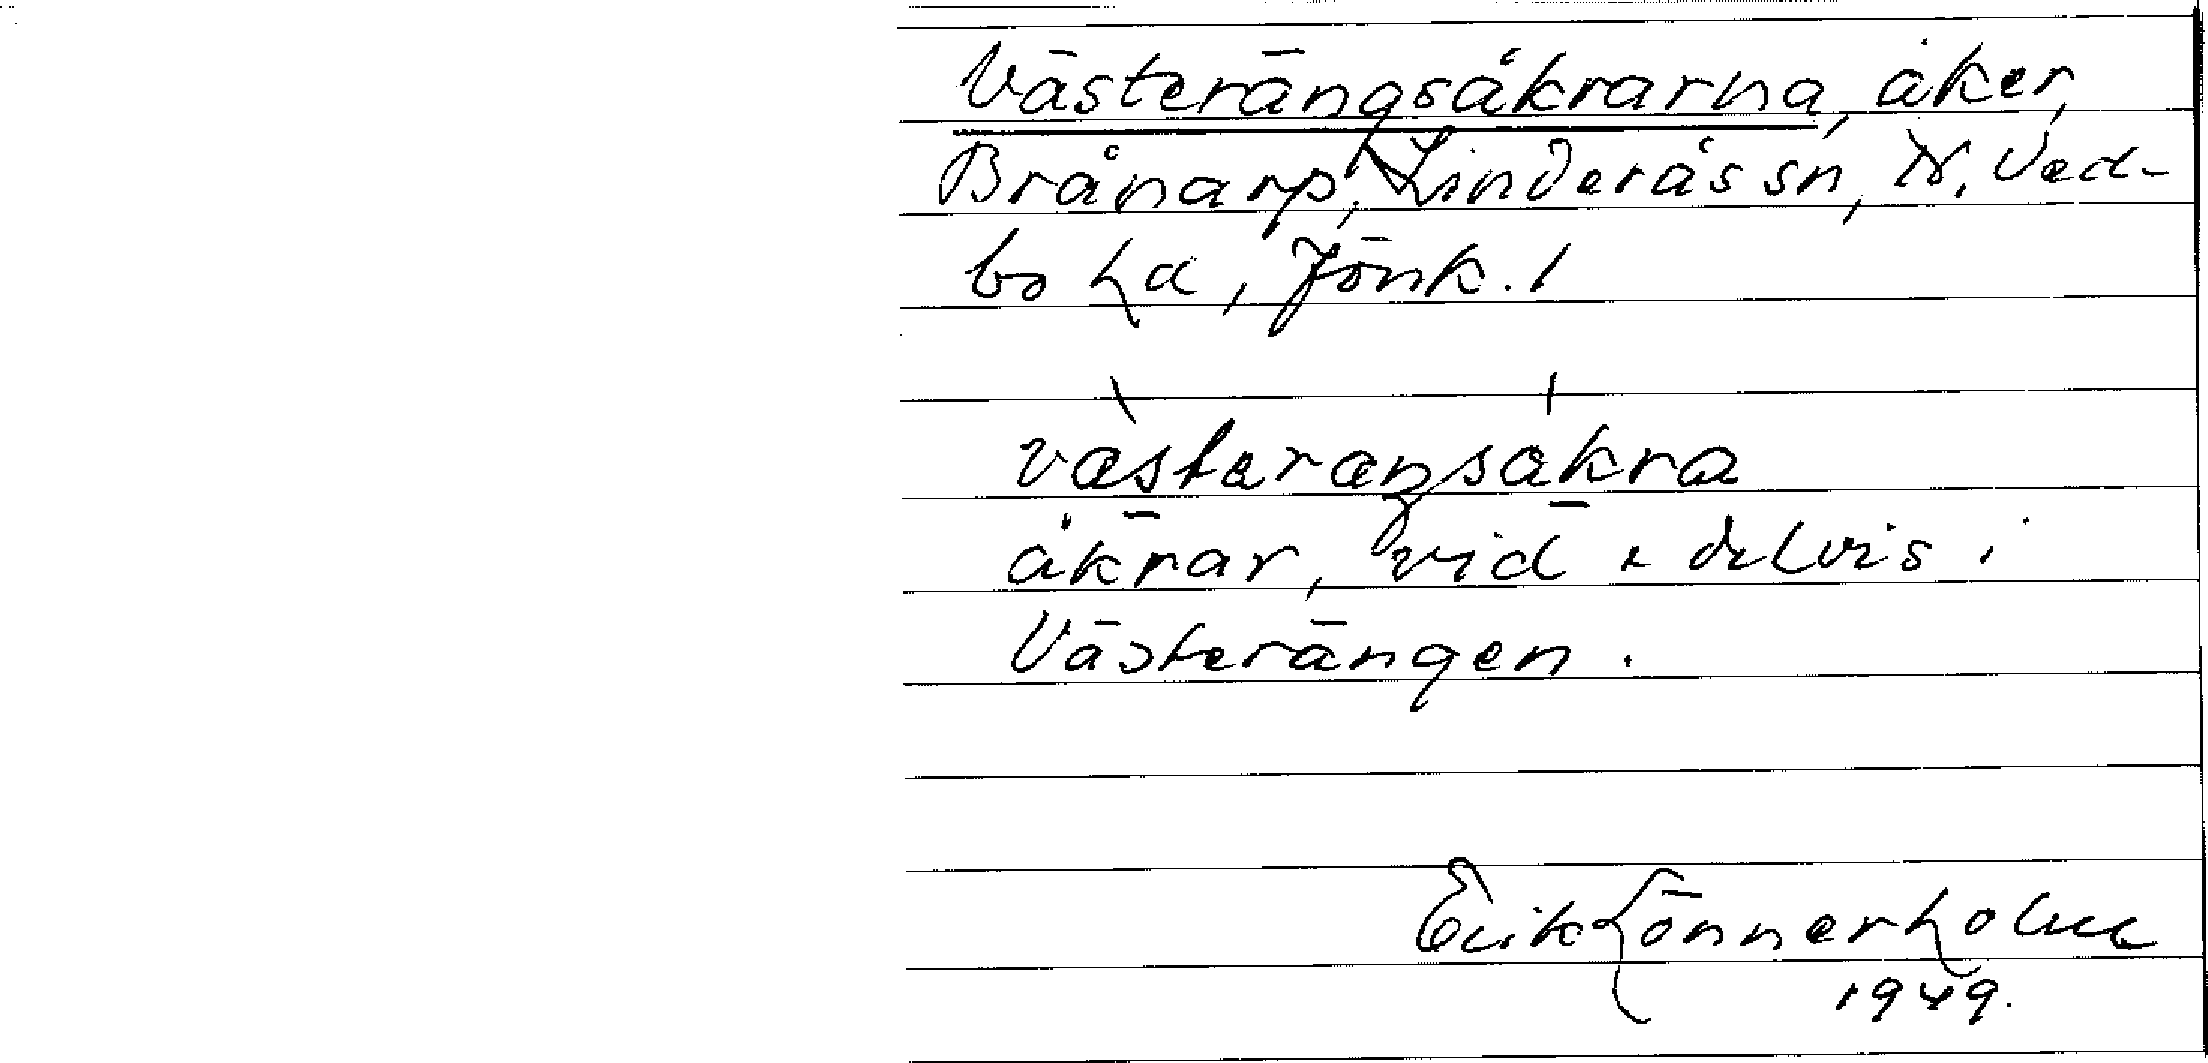 Västerängsåkrarna, åker,
Brånarp, Linderås sn, N. Ved-
bo hd, Jönk. l
västeraŋsåkra
åkrar, vid & delvis i
Västerängen.
Erik Lönnerholm
1949.